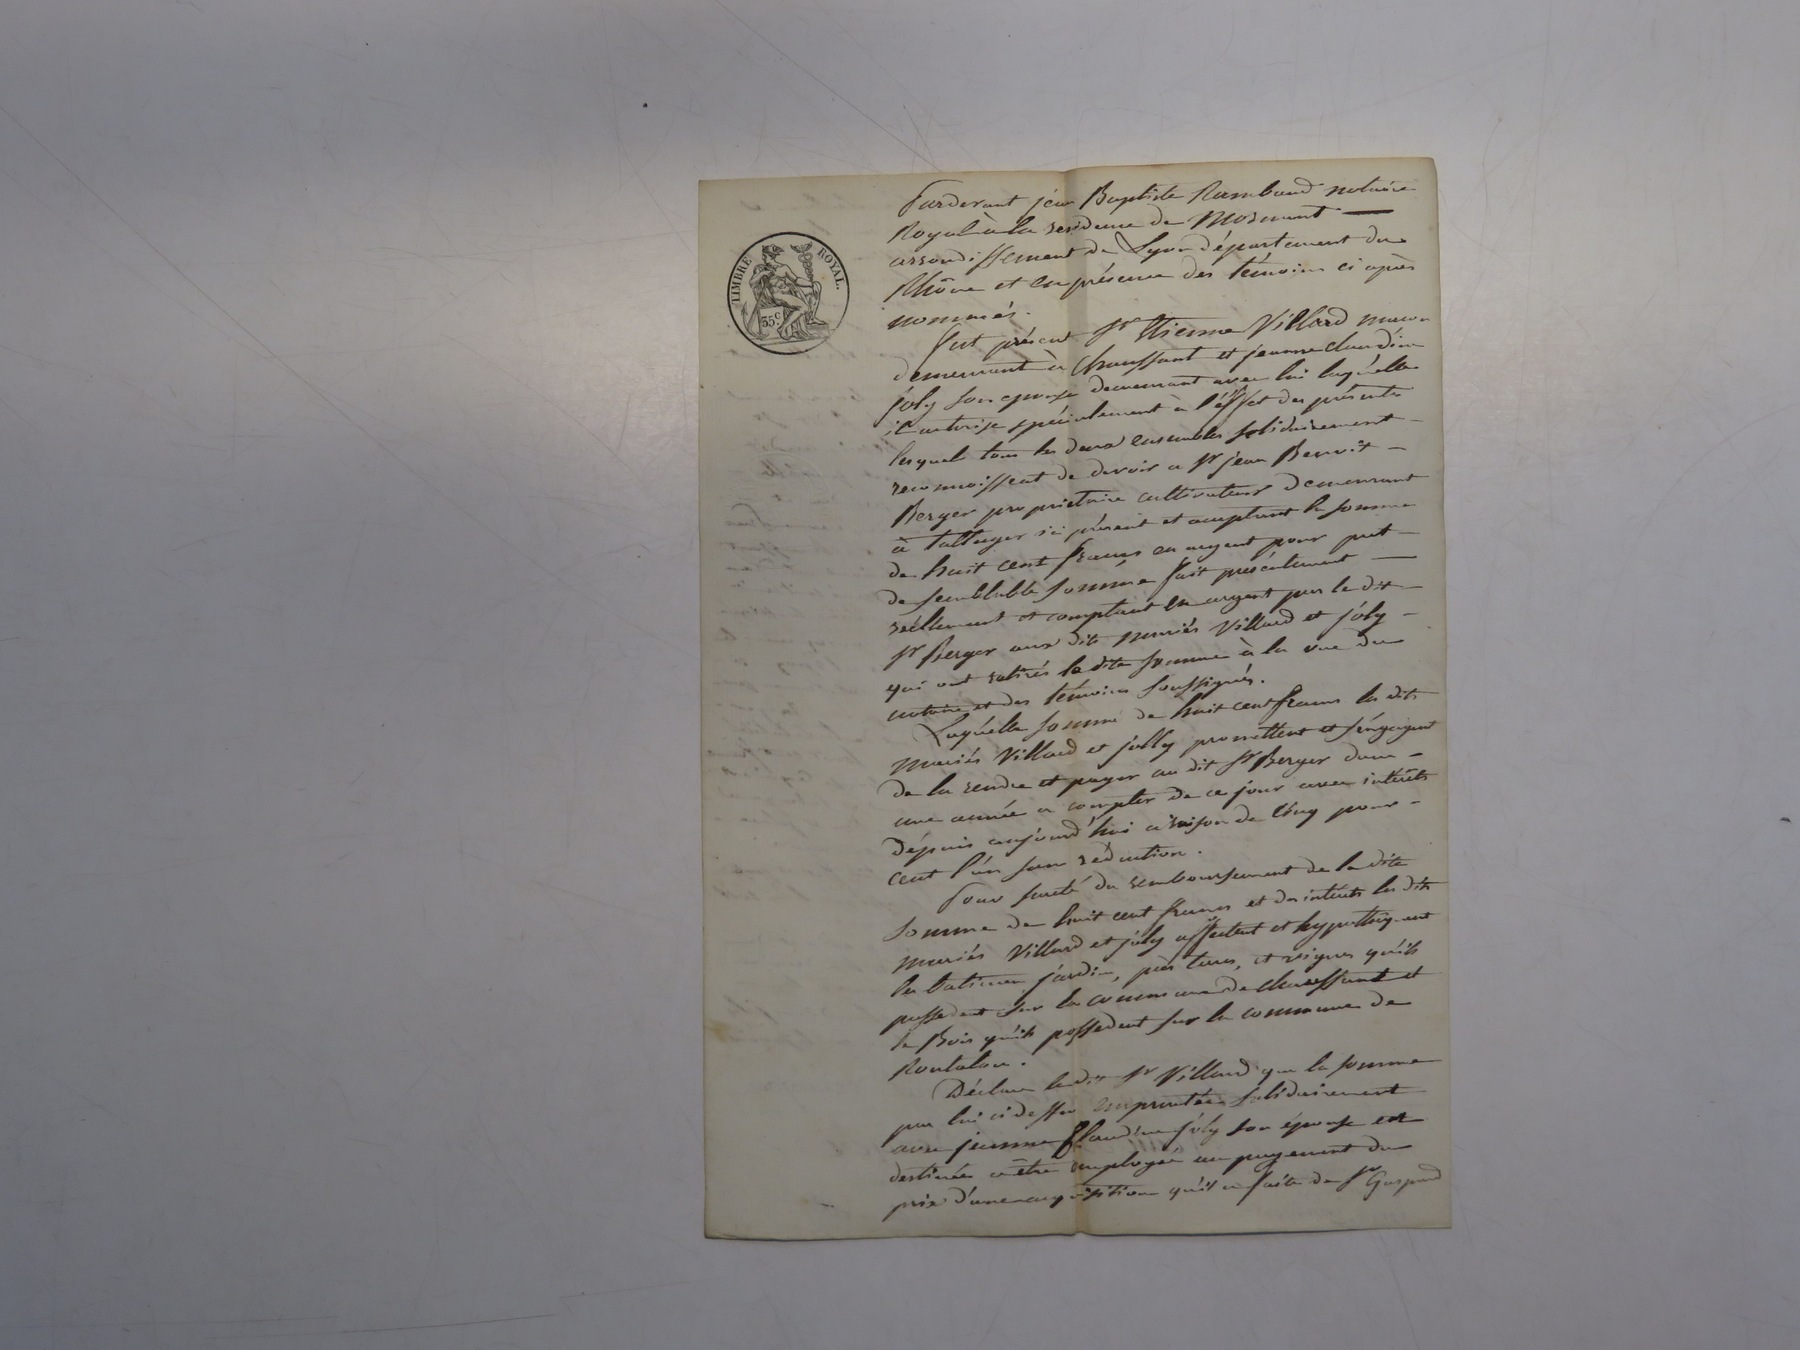 TIMBRE ROYAL.
35c
Pardevant jean Baptiste Rambaud notaire
Royal à la residence de Mornant
arrondissement de Lyon département du
Rhône et en présence des témoins ci après
nommés.
fut présent Sr Etienne Villard maçon
demeurant à Chaussant et jeanne claudine
joly son epouse demeurant avec lui laquélle
il autorise spécialement à l'éffet des présentes
lesquels tous les deux ensembles solidairement
reconnoissent de devoir a Sr jean Benoît
Berger propriétaire cultivateur demeurant
à talluyer ici présent et acceptant la somme
de huit cent francs en argent pour pret
de semblable somme fait présentement
réellement et comptant en argent par le dit
Sr Berger aux dits mariés Villard et joly
qui ont retirés la dite somme à la vue du
notaire et des témoins soussignés.
Laquélle somme de huit cent francs les dits
mariés Villard et jolly promettent et s'éngagent
de la rendre et payer au dit Sr Berger dans
une année a compter de ce jour avec intérêts
dépuis aujourd'hui a raison de cinq pour
cent l'an sans réduction.
Pour sureté du remboursement de la dite
somme de huit cent francs et des intérêts les dits
mariés Villard et joly affectent et hypothéquent
les batimen jardin, prés terres, et vignes qu'ils
possedent sur la commune de chaussant et
le Bois qu'ils possedent sur la commune de
Rontalon.
Déclare le dit Sr Villard que la somme
par lui ci dessus empruntée solidairement
avec jeanne Claudine joly son épouse est
destinée a être employée au payement du
prix d'une acquisition qu'il a faite de Sr Gaspard